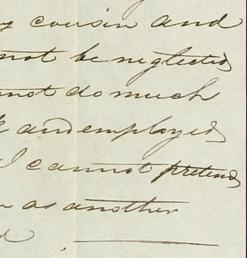 cousin and
not be neglected
not do much
and employed
I cannot pretend
as another